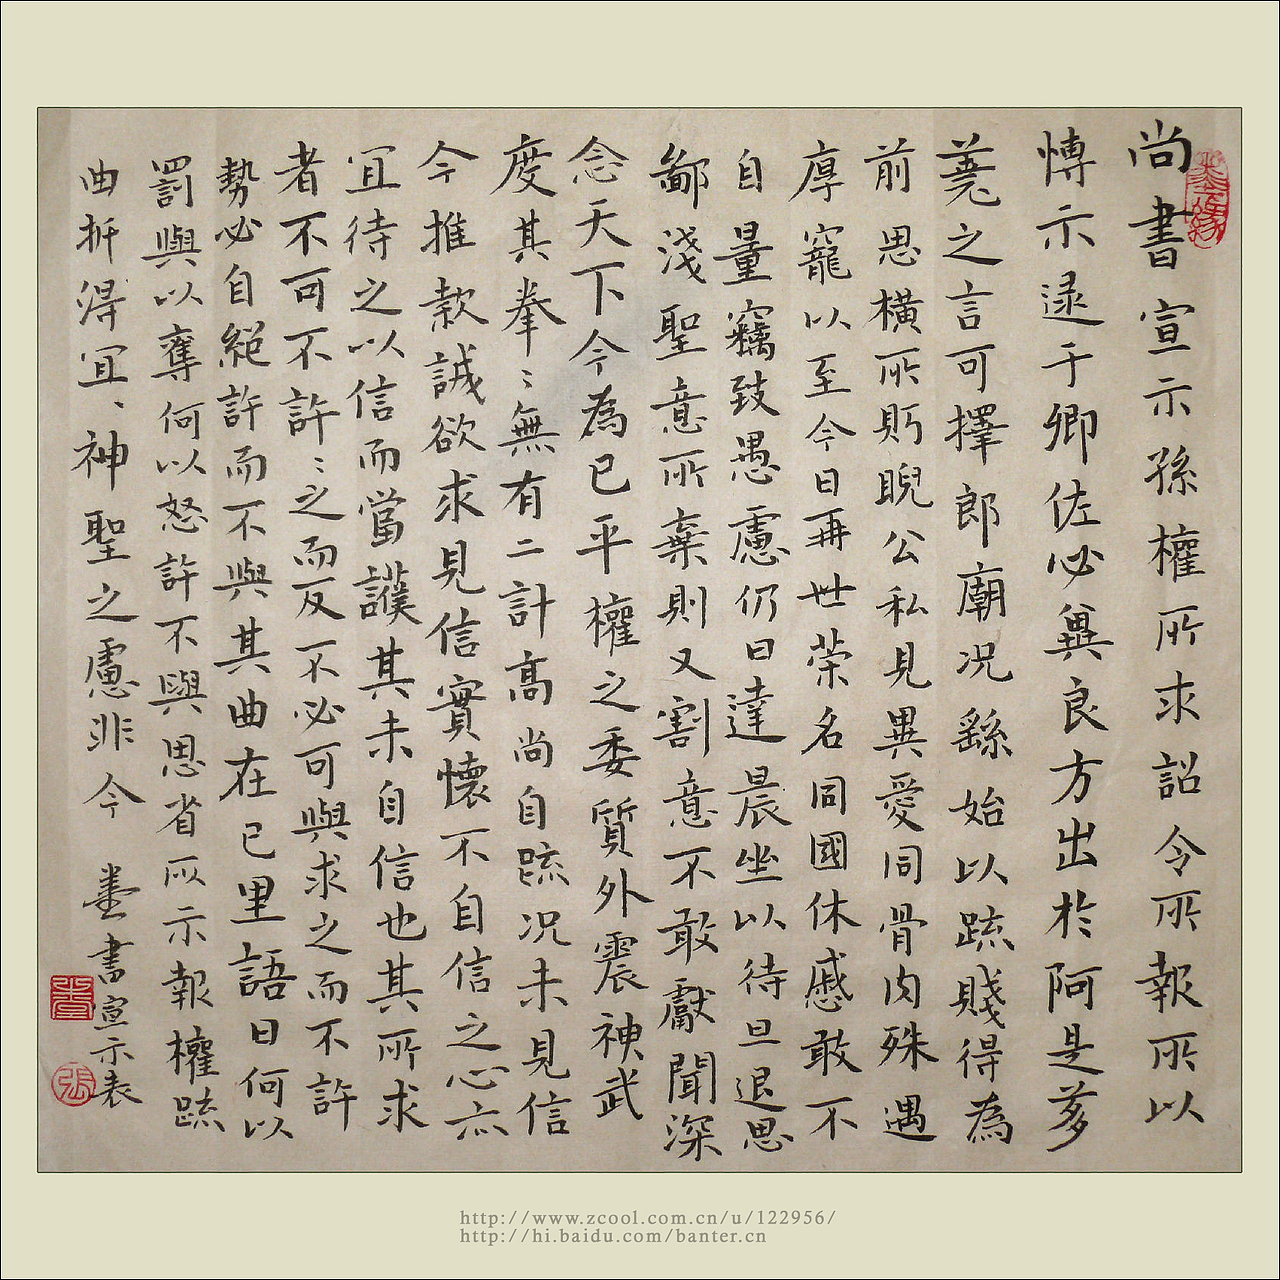 尚書宣示孫權所求詔令所報所以
博示逮于卿佐必冀良方出於阿是芻
蕘之言可擇郎廟況繇始以疏賤得為
前恩橫所眄睨公私見異愛同骨肉殊遇
厚寵以至今日再世荣名同國休慼敢不
自量竊致愚慮仍日達晨坐以待旦退思
鄙淺聖意所棄則又割意不敢獻聞深
念天下今為已平權之委質外震神武
度其拳〻無有二計高尚自疏況未見信
今推款誠欲求見信實懷不自信之心亦
宜待之以信而當護其未自信也其所求
者不可不許〻之而反不必可與求之而不許
勢必自絕許而不與其曲在已里語曰何以
罰與以奪何以怒許不與思省所示報權疏
曲折得宜、神聖之慮非今 書宣示表
http://www.zcool.com.cn/u/122956/
http://hi.baidu.com/banter.cn